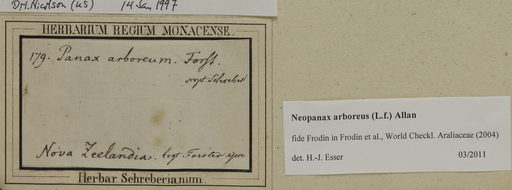 D.H. Nicolson (US) 14 Jan 1997
HERBARIUM REGIUM MONACENSE.
179. Panax arboreum. Forst.
Nova Zeelandia. legit Forster ipse
Herbar. Schreberianum.
Neopanax arboreus (L.f.) Allan
fide Frodin in Frodin et al., World Checkl. Araliaceae (2004)
det. H.-J. Esser 03/2011